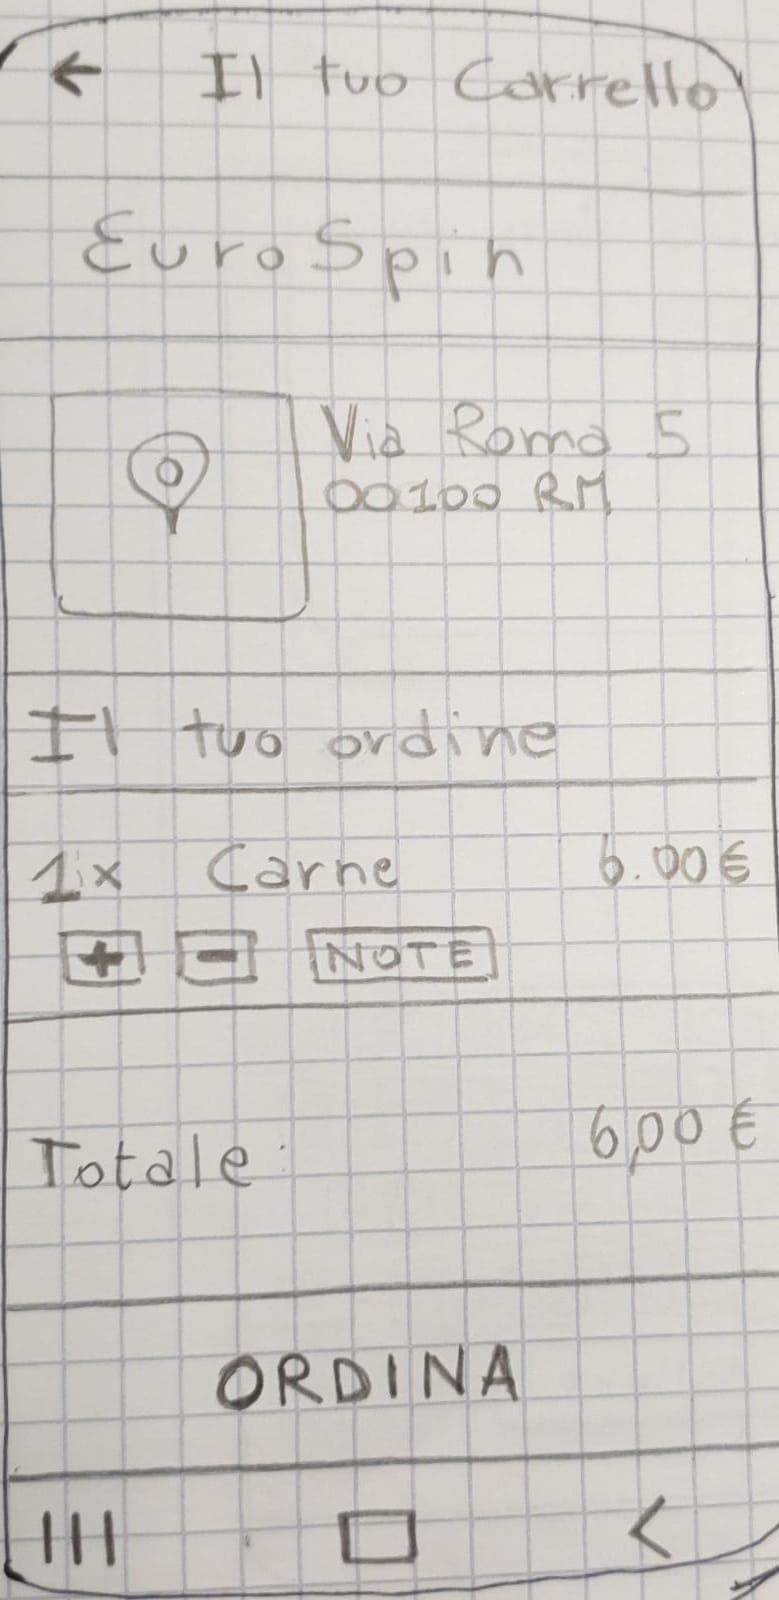 ← Il tuo Carrello
EuroSpin
Via Roma 5
00100 RM
Il tuo ordine
1x Carne 6.00€
+ - NOTE
Totale: 6,00 €
ORDINA